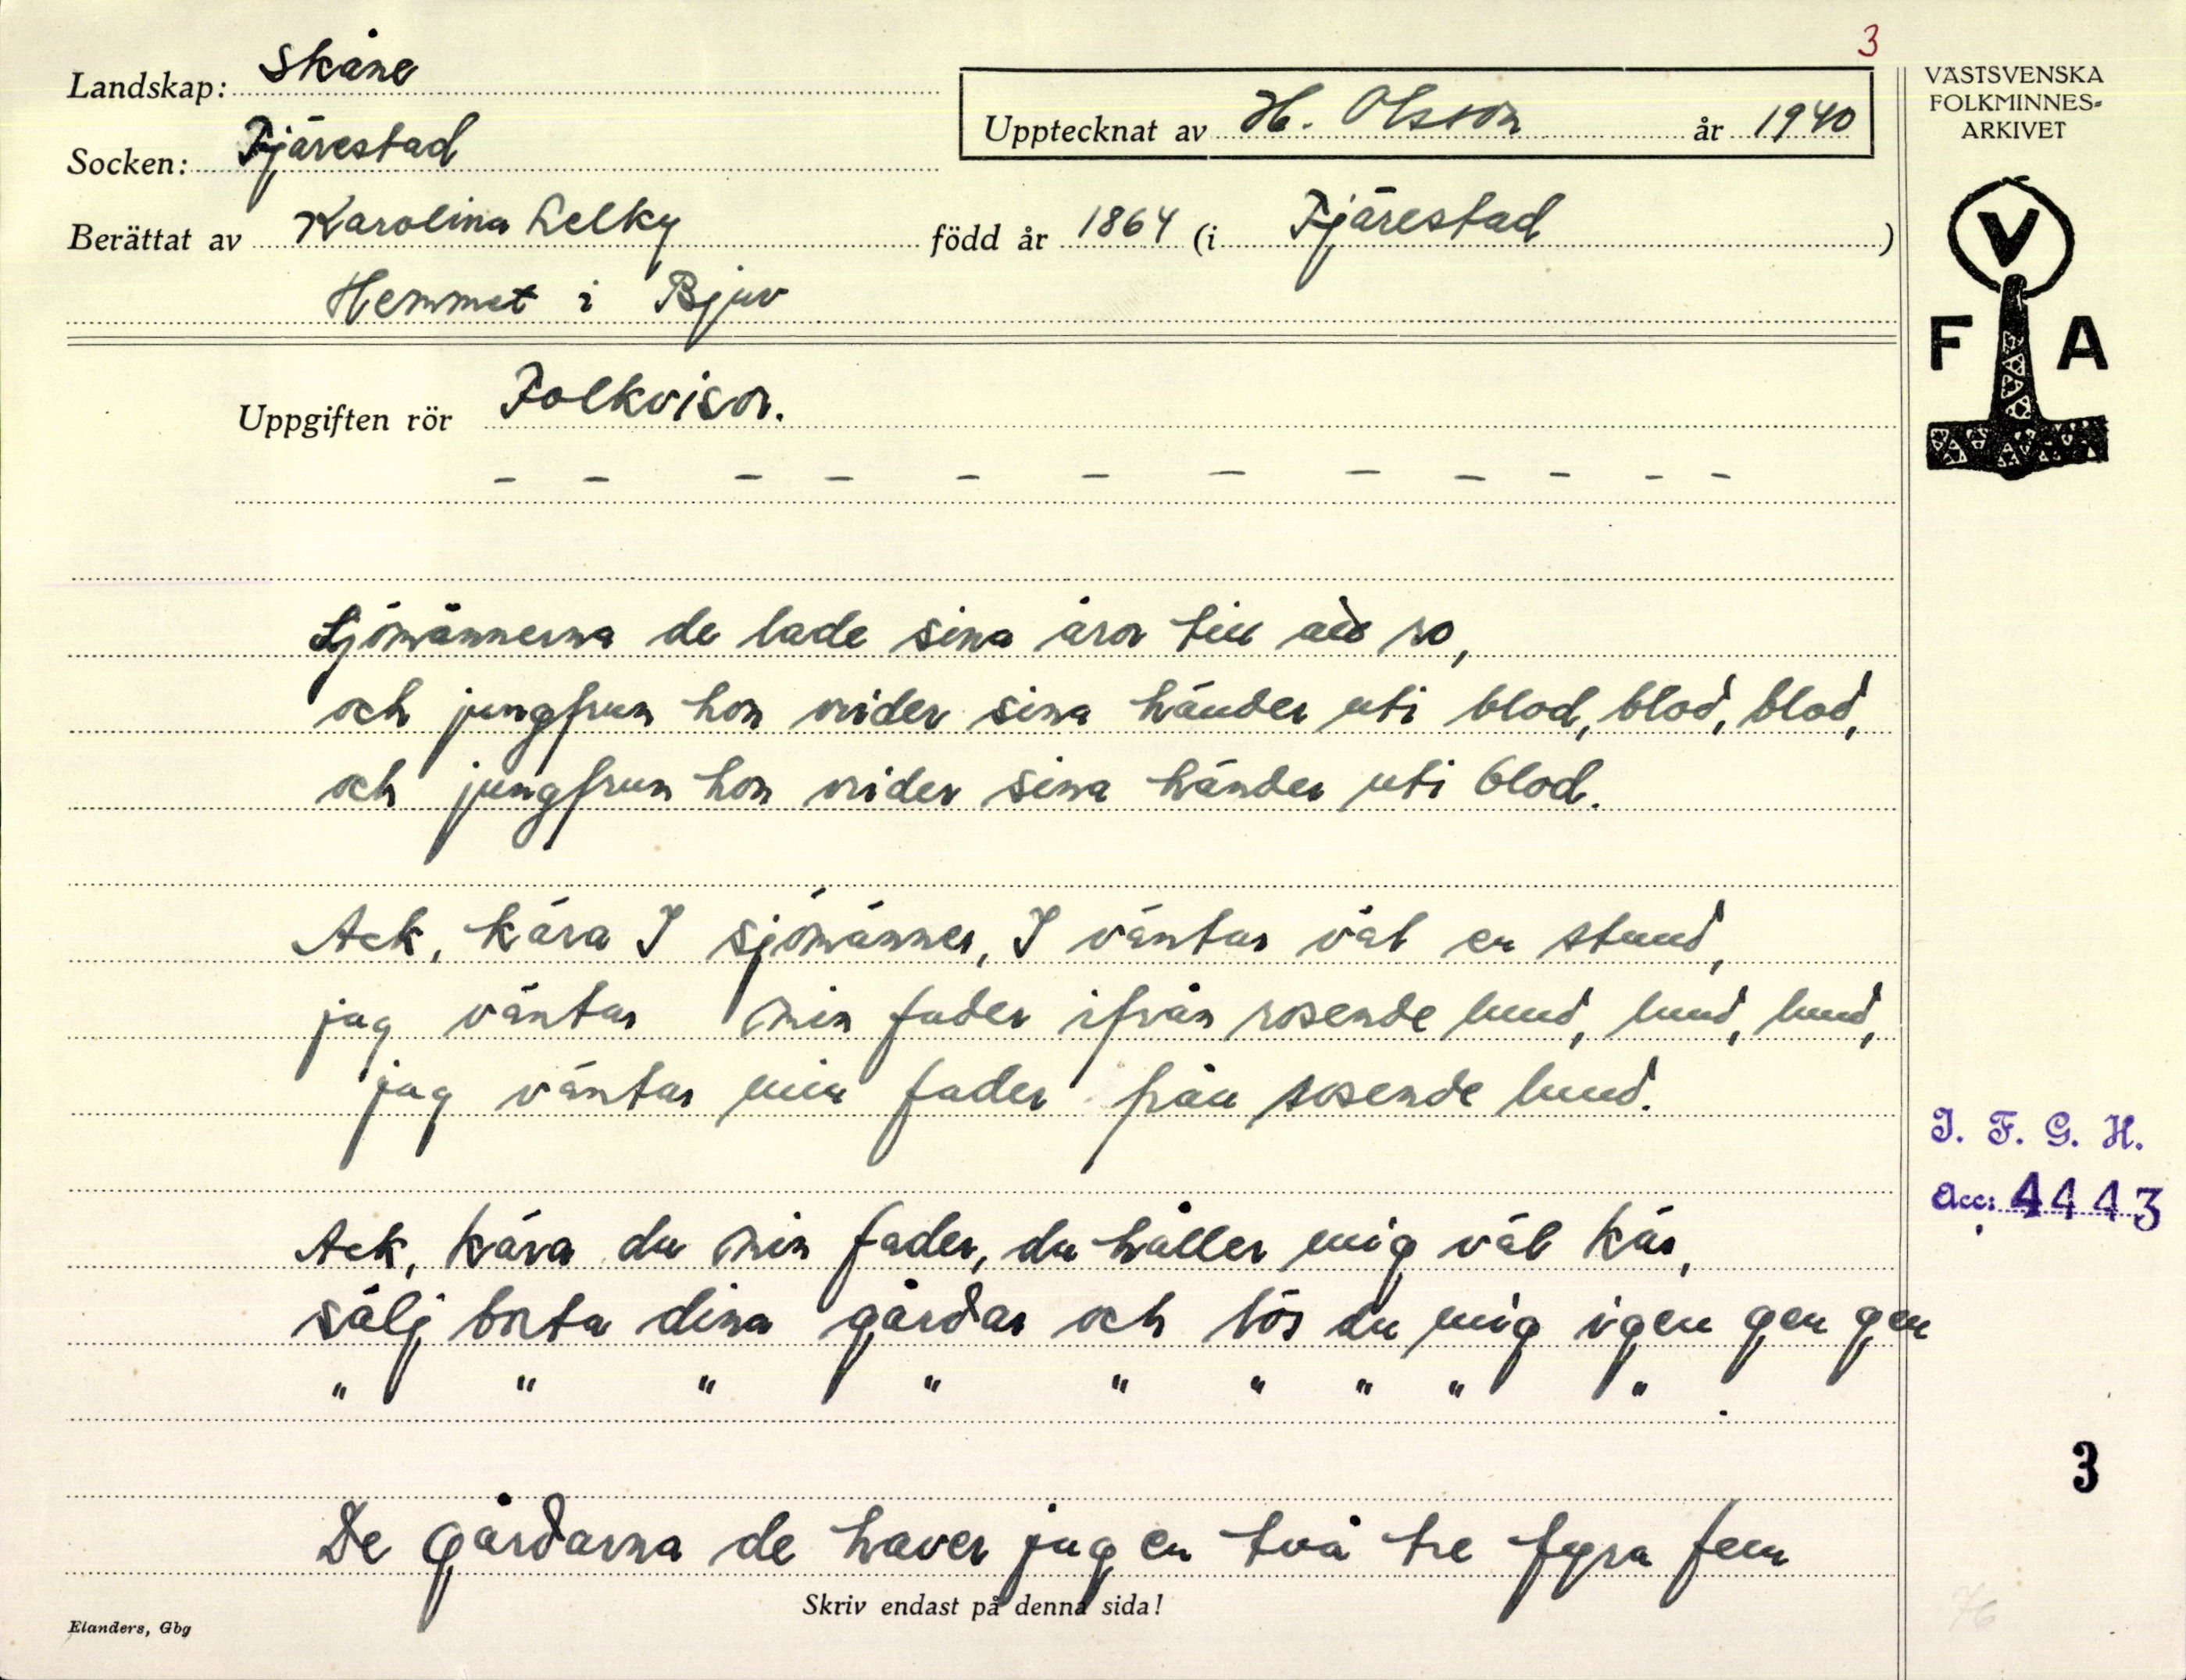 3
Landskap: Skåne
Upptecknat av H. Olsson år 1940
VÄSTSVENSKA
FOLKMINNES-
ARKIVET
Socken: Fjärestad
Berättat av Karolina Lelky född år 1864 (i Fjärestad)
Hemmet i Bjuv
V
F A
Uppgiften rör Folkvisor.
– – – – – – – – – – – –
Sjömännerna de lade sina åror till att ro,
och jungfrun hon vrider sina händer uti blod, blod, blod,
och jungfrun hon vrider sina händer uti blod.
Ack, kära I sjömänner, I väntar väl en stund,
jag väntar min fader ifrån rosende lund, lund, lund,
jag väntar min fader från rosende lund.
I. F. G. H.
Acc: 4443
Ack, kära du min fader, du håller mig väl kär,
sälj borta dina gårdar och lös du mig igen gen gen
" " " " " " " " " .
3
De gårdarna de haver jag en två tre fyra fem
Skriv endast på denna sida!
Elanders, Gbg
76